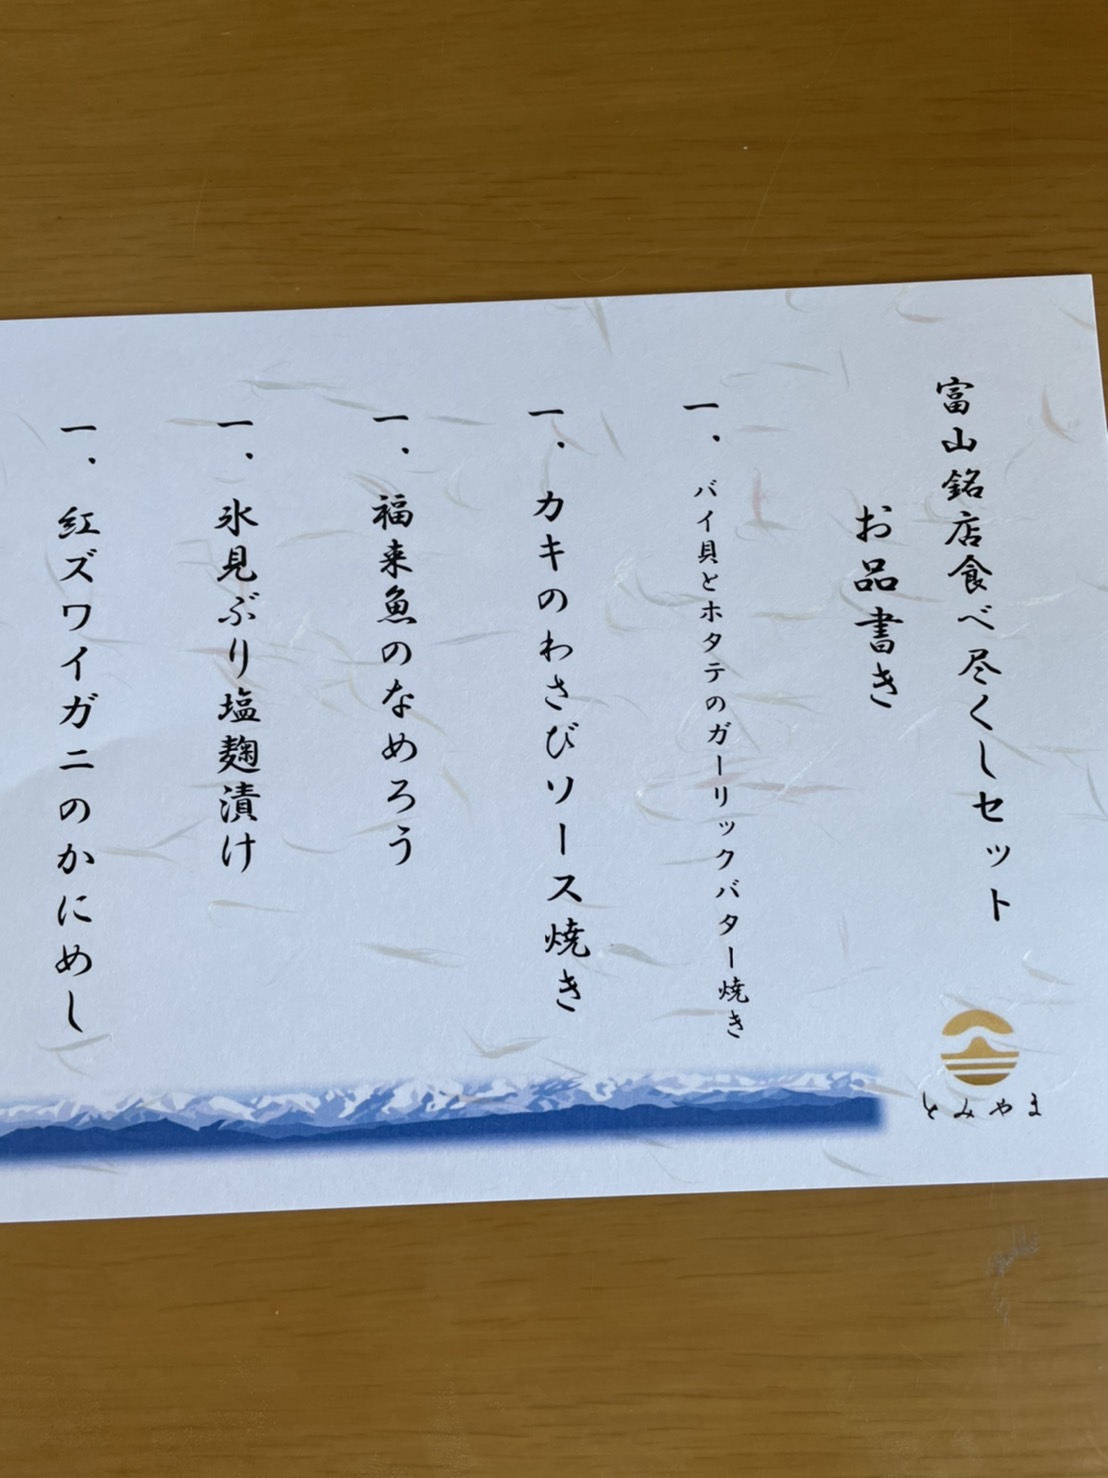 富山銘店食べ尽くしセット
お品書き
一． バイ貝とホタテのガーリックバター焼き
一． カキのわさびソース焼き
一． 福来魚のなめろう
一． 氷見ぶり塩麹漬け
一． 紅ズワイガニのかにめし
とみやま